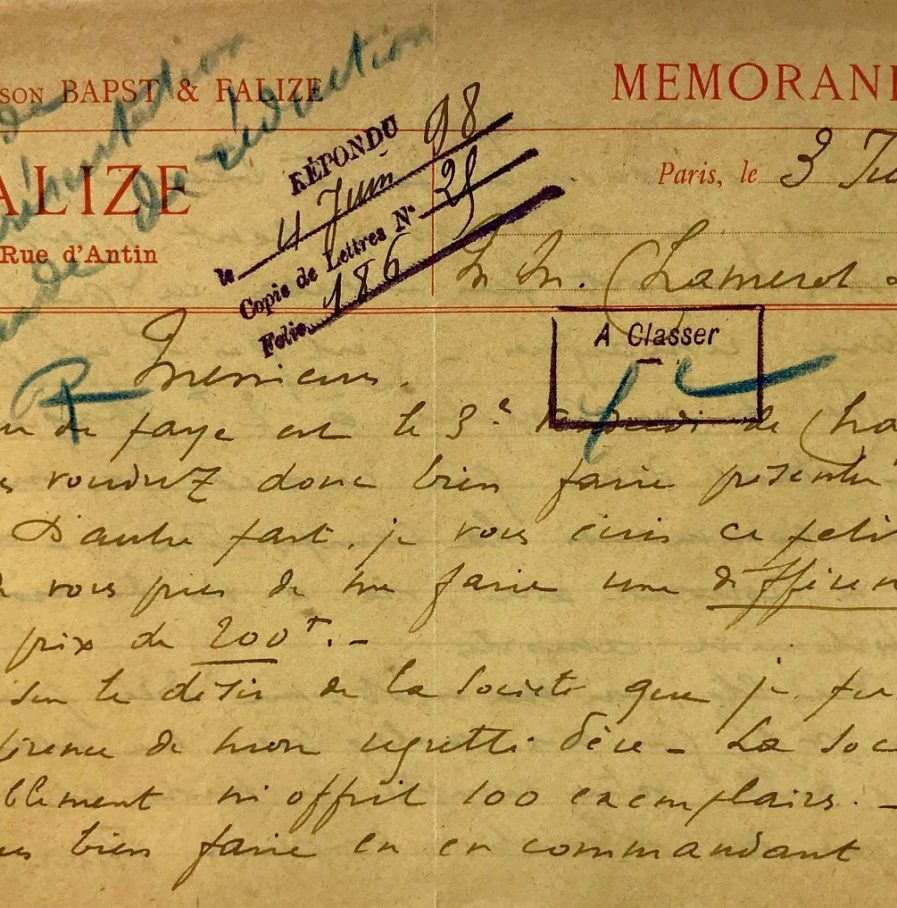 son BAPST & FALIZE
MEMORAN
de
présentation
de réduction
ALIZE
Rue d'Antin
RÉPONDU
98
le 4 Juin
Copie de Lettres N° 25
Folio 186
Paris, le 3 Ju
M M. Chamerot
A Classer
Messieurs.
de faye est le 3e de Cha
voudrez donc bien faire présenter
D'autre part, je vous ce petit
vous prier de me faire une différen
prix de 200f. -
le désir de la Société que je
de mon regretté Père - La Soc
blement m'offrit 100 exemplaires. -
bien faire en en commandant